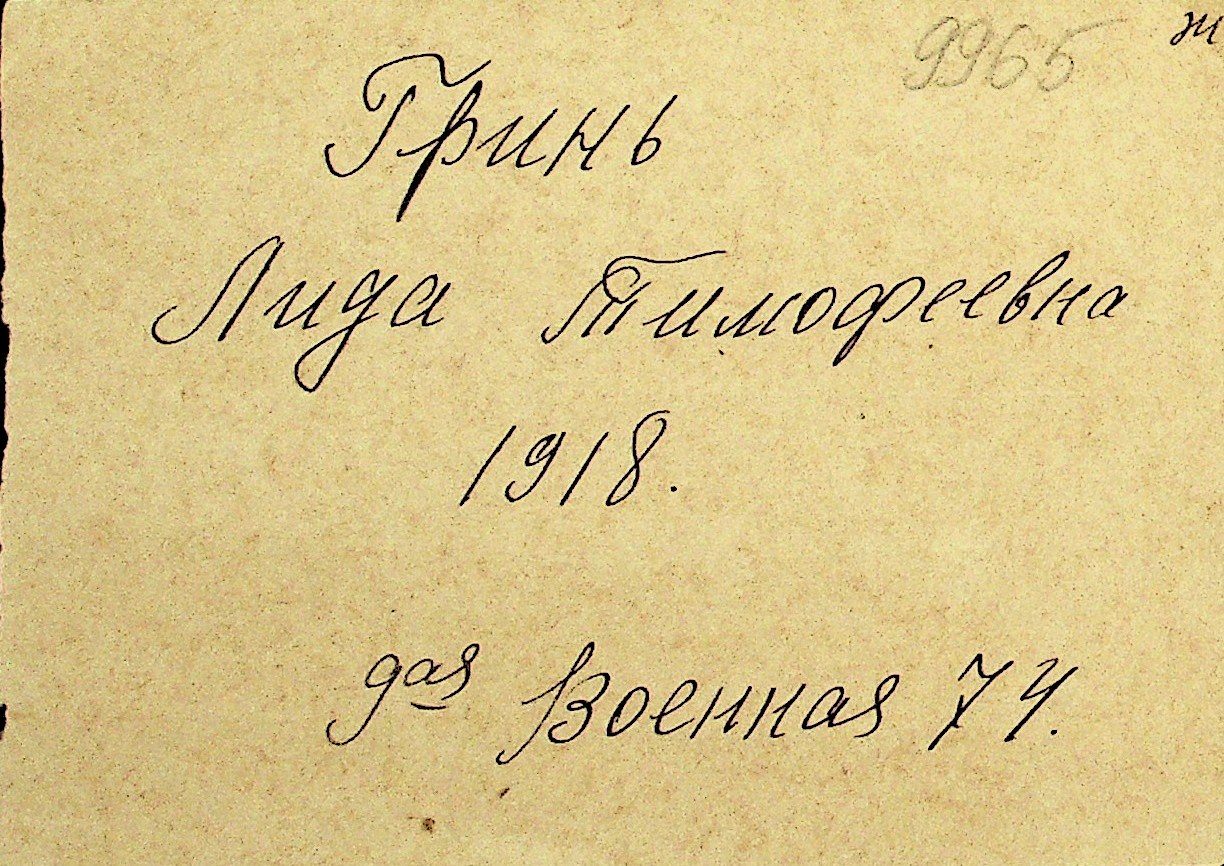 9965 ж
Гринь
Лида Тимофеевна
1918.
9ая Военная 74.